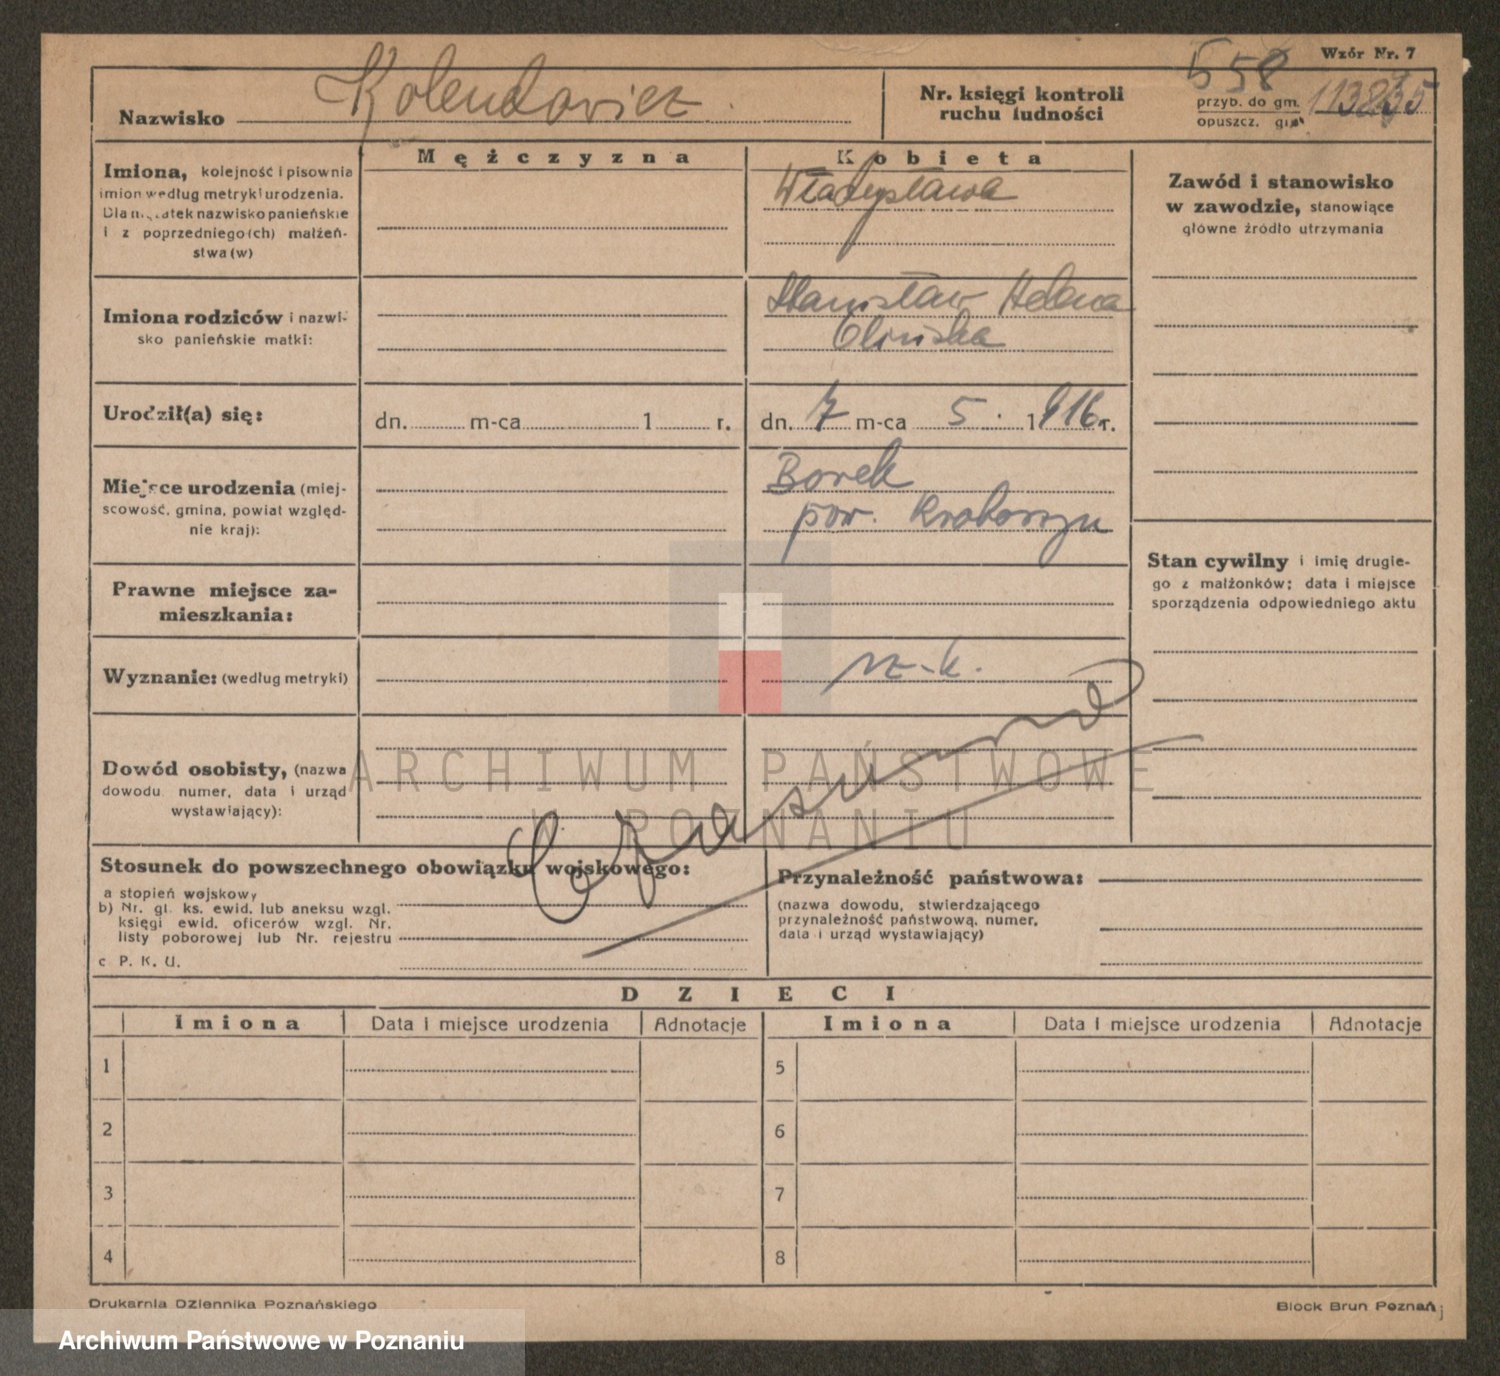 Wzór Nr. 7
Nazwisko Kolendowicz
Nr. księgi kontroli
ruchu ludności
558
przyb. do gm.
opuszcz. gm.
Mężczyzna
Kobieta
Imiona, kolejność i pisownia
imion według metryki urodzenia.
Dla mężatek nazwisko panieńskie
i z poprzedniego(ch) małżeń-
stwa(w)
Władysława
Zawód i stanowisko
w zawodzie, stanowiące
główne źródło utrzymania
Imiona rodziców i nazwi-
sko panieńskie matki:
Stanisław Helena
Olińska
Urodził(a) się:
dn. m-ca 1 r.
dn. 7 m-ca 5. 1916 r.
Miejsce urodzenia (miej-
scowość, gmina, powiat względ-
nie kraj):
Borek
pow. Krotoszyn
Stan cywilny i imię drugie-
go z małżonków; data i miejsce
sporządzenia odpowiedniego aktu
Prawne miejsce za-
mieszkania:
Wyznanie: (według metryki)
rz-k.
Dowód osobisty, (nazwa
dowodu, numer, data i urząd
wystawiający):
ARCHIWUM PAŃSTWOWE
W POZNANIU
Stosunek do powszechnego obowiązku wojskowego:
a stopień wojskowy
b) Nr. gł. ks. ewid. lub aneksu wzgl.
księgi ewid. oficerów wzgl. Nr.
listy poborowej lub Nr. rejestru
c P. K. U.
Przynależność państwowa:
(nazwa dowodu, stwierdzającego
przynależność państwową, numer,
data i urząd wystawiający)
DZIECI
Imiona Data i miejsce urodzenia Adnotacje Imiona Data i miejsce urodzenia Adnotacje
1 5
2 6
3 7
4 8
Drukarnia Dziennika Poznańskiego
Block Brun Poznań
Archiwum Państwowe w Poznaniu